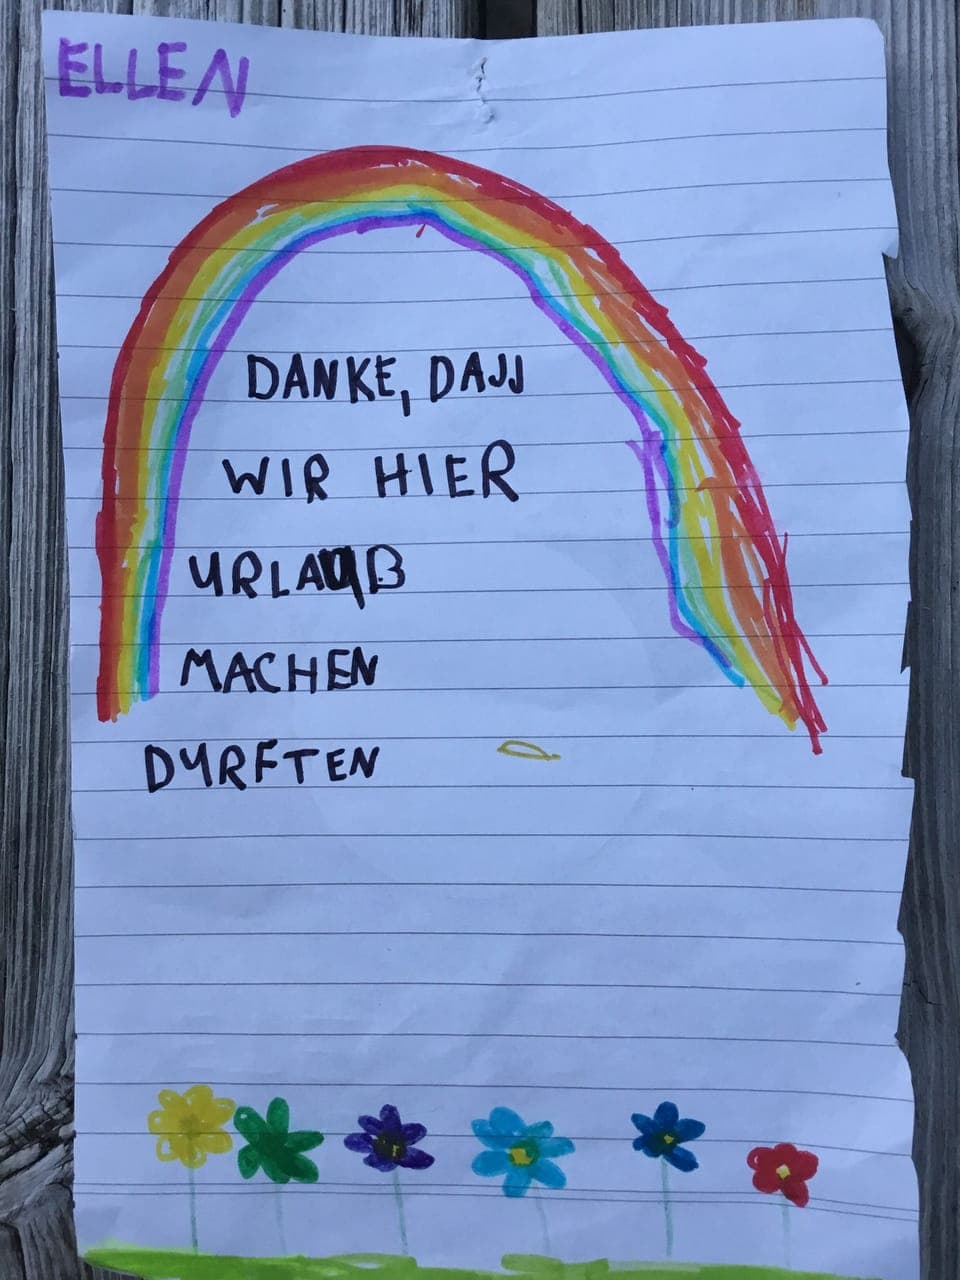 ELLEN
DANKE, DAJJ
WIR HIER
URLAUB
MACHEN
DYRFTEN